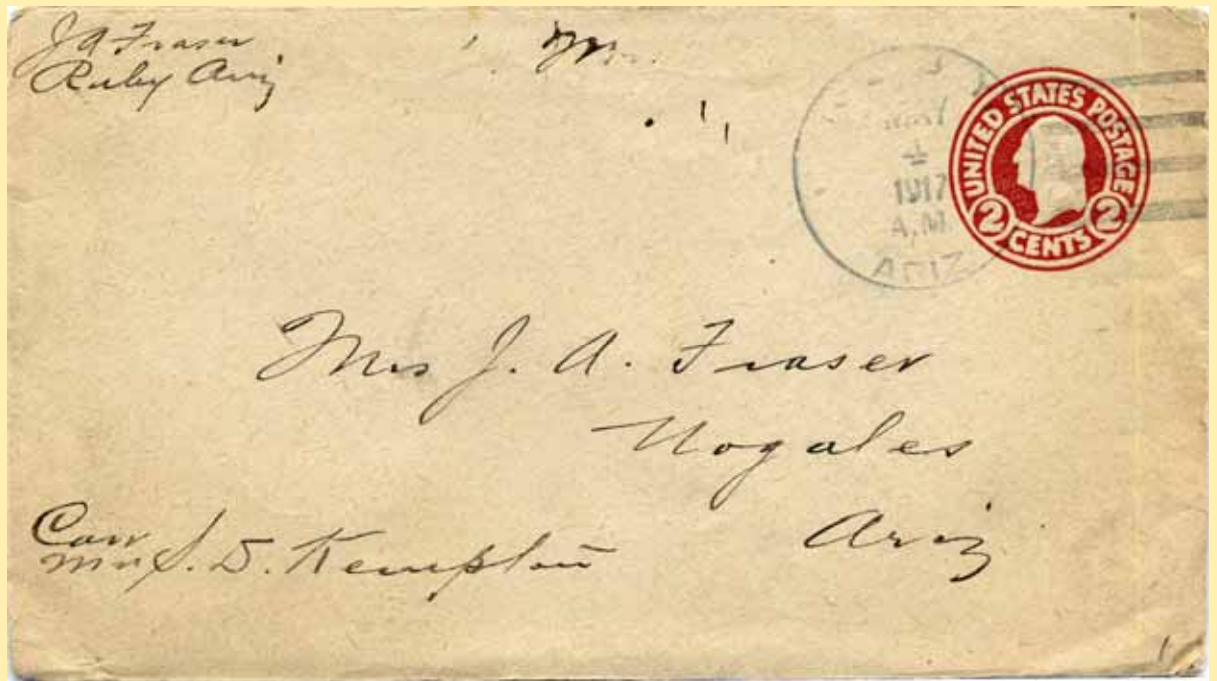 J A Fraser
Ruby Ariz
Mr.
MAY
4
1917
A.M.
ARIZ
UNITED STATES POSTAGE
2 CENTS 2
Mrs J. A. Fraser
Nogales
Ariz
Care
Mrs S. D. Kempton